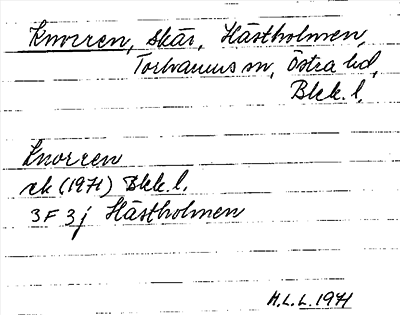 Knorren, skär, Hästholmen,
Torhamns sn, Östra hd,
Blek. l.
Knorren
ek (1971) Blek. l.
3 F 3 j Hästholmen
H. L. L. 1971